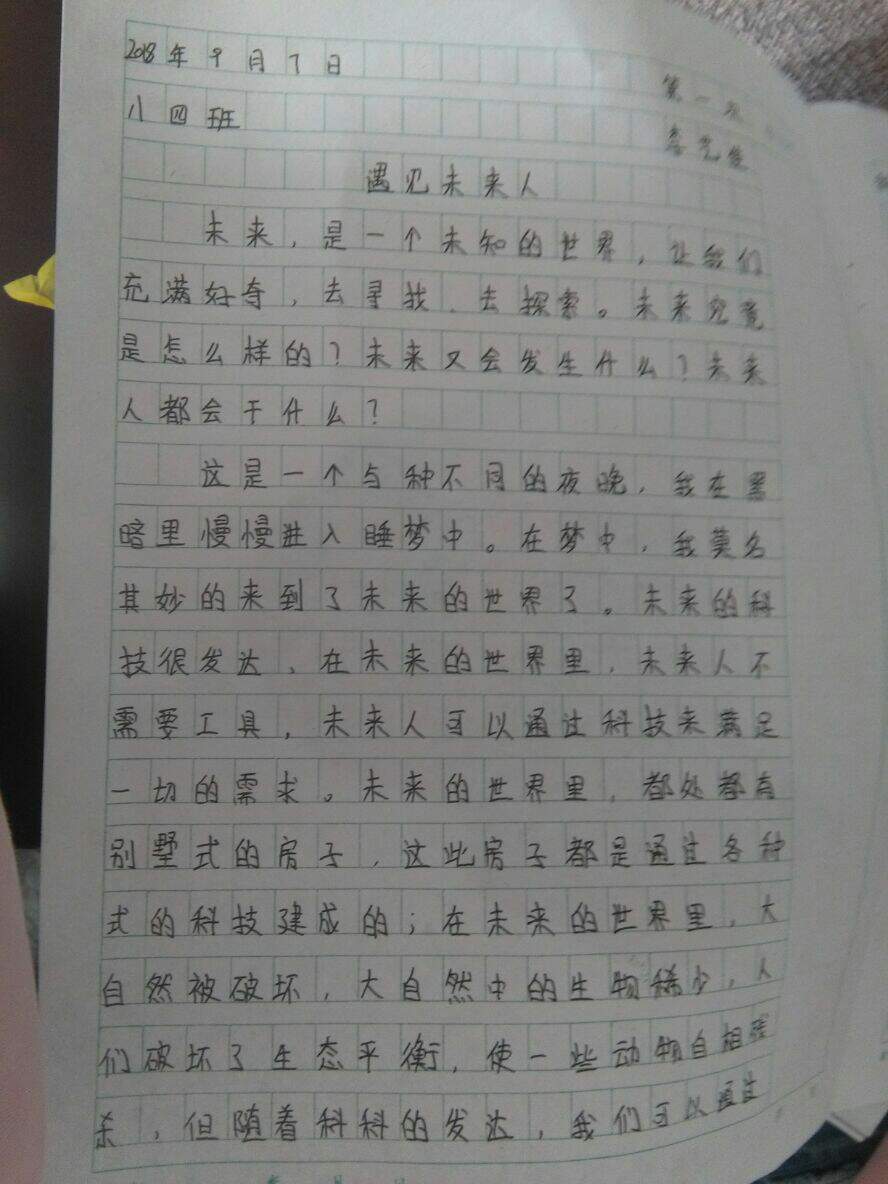 2018年9月7日
第一
八四班
遇见未来人
未来，是一个未知的世界，让我们
充满好奇，去寻找、去探索。未来究竟
是怎么样的？未来又会发生什么？未来
人都会干什么？
这是一个与种不同的夜晚，我在黑
暗里慢慢进入睡梦中。在梦中，我莫名
其妙的来到了未来的世界了。未来的科
技很发达，在未来的世界里，未来人不
需要工具，未来人可以通过科技来满足
一切的需求。未来的世界里，都处都有
别墅式的房子，这此房子都是通过各种
式的科技建成的；在未来的世界里，大
自然被破坏，大自然中的生物稀少，人
们破坏了生态平衡，使一些动物自相残
杀，但随着科科的发达，我们可以通过